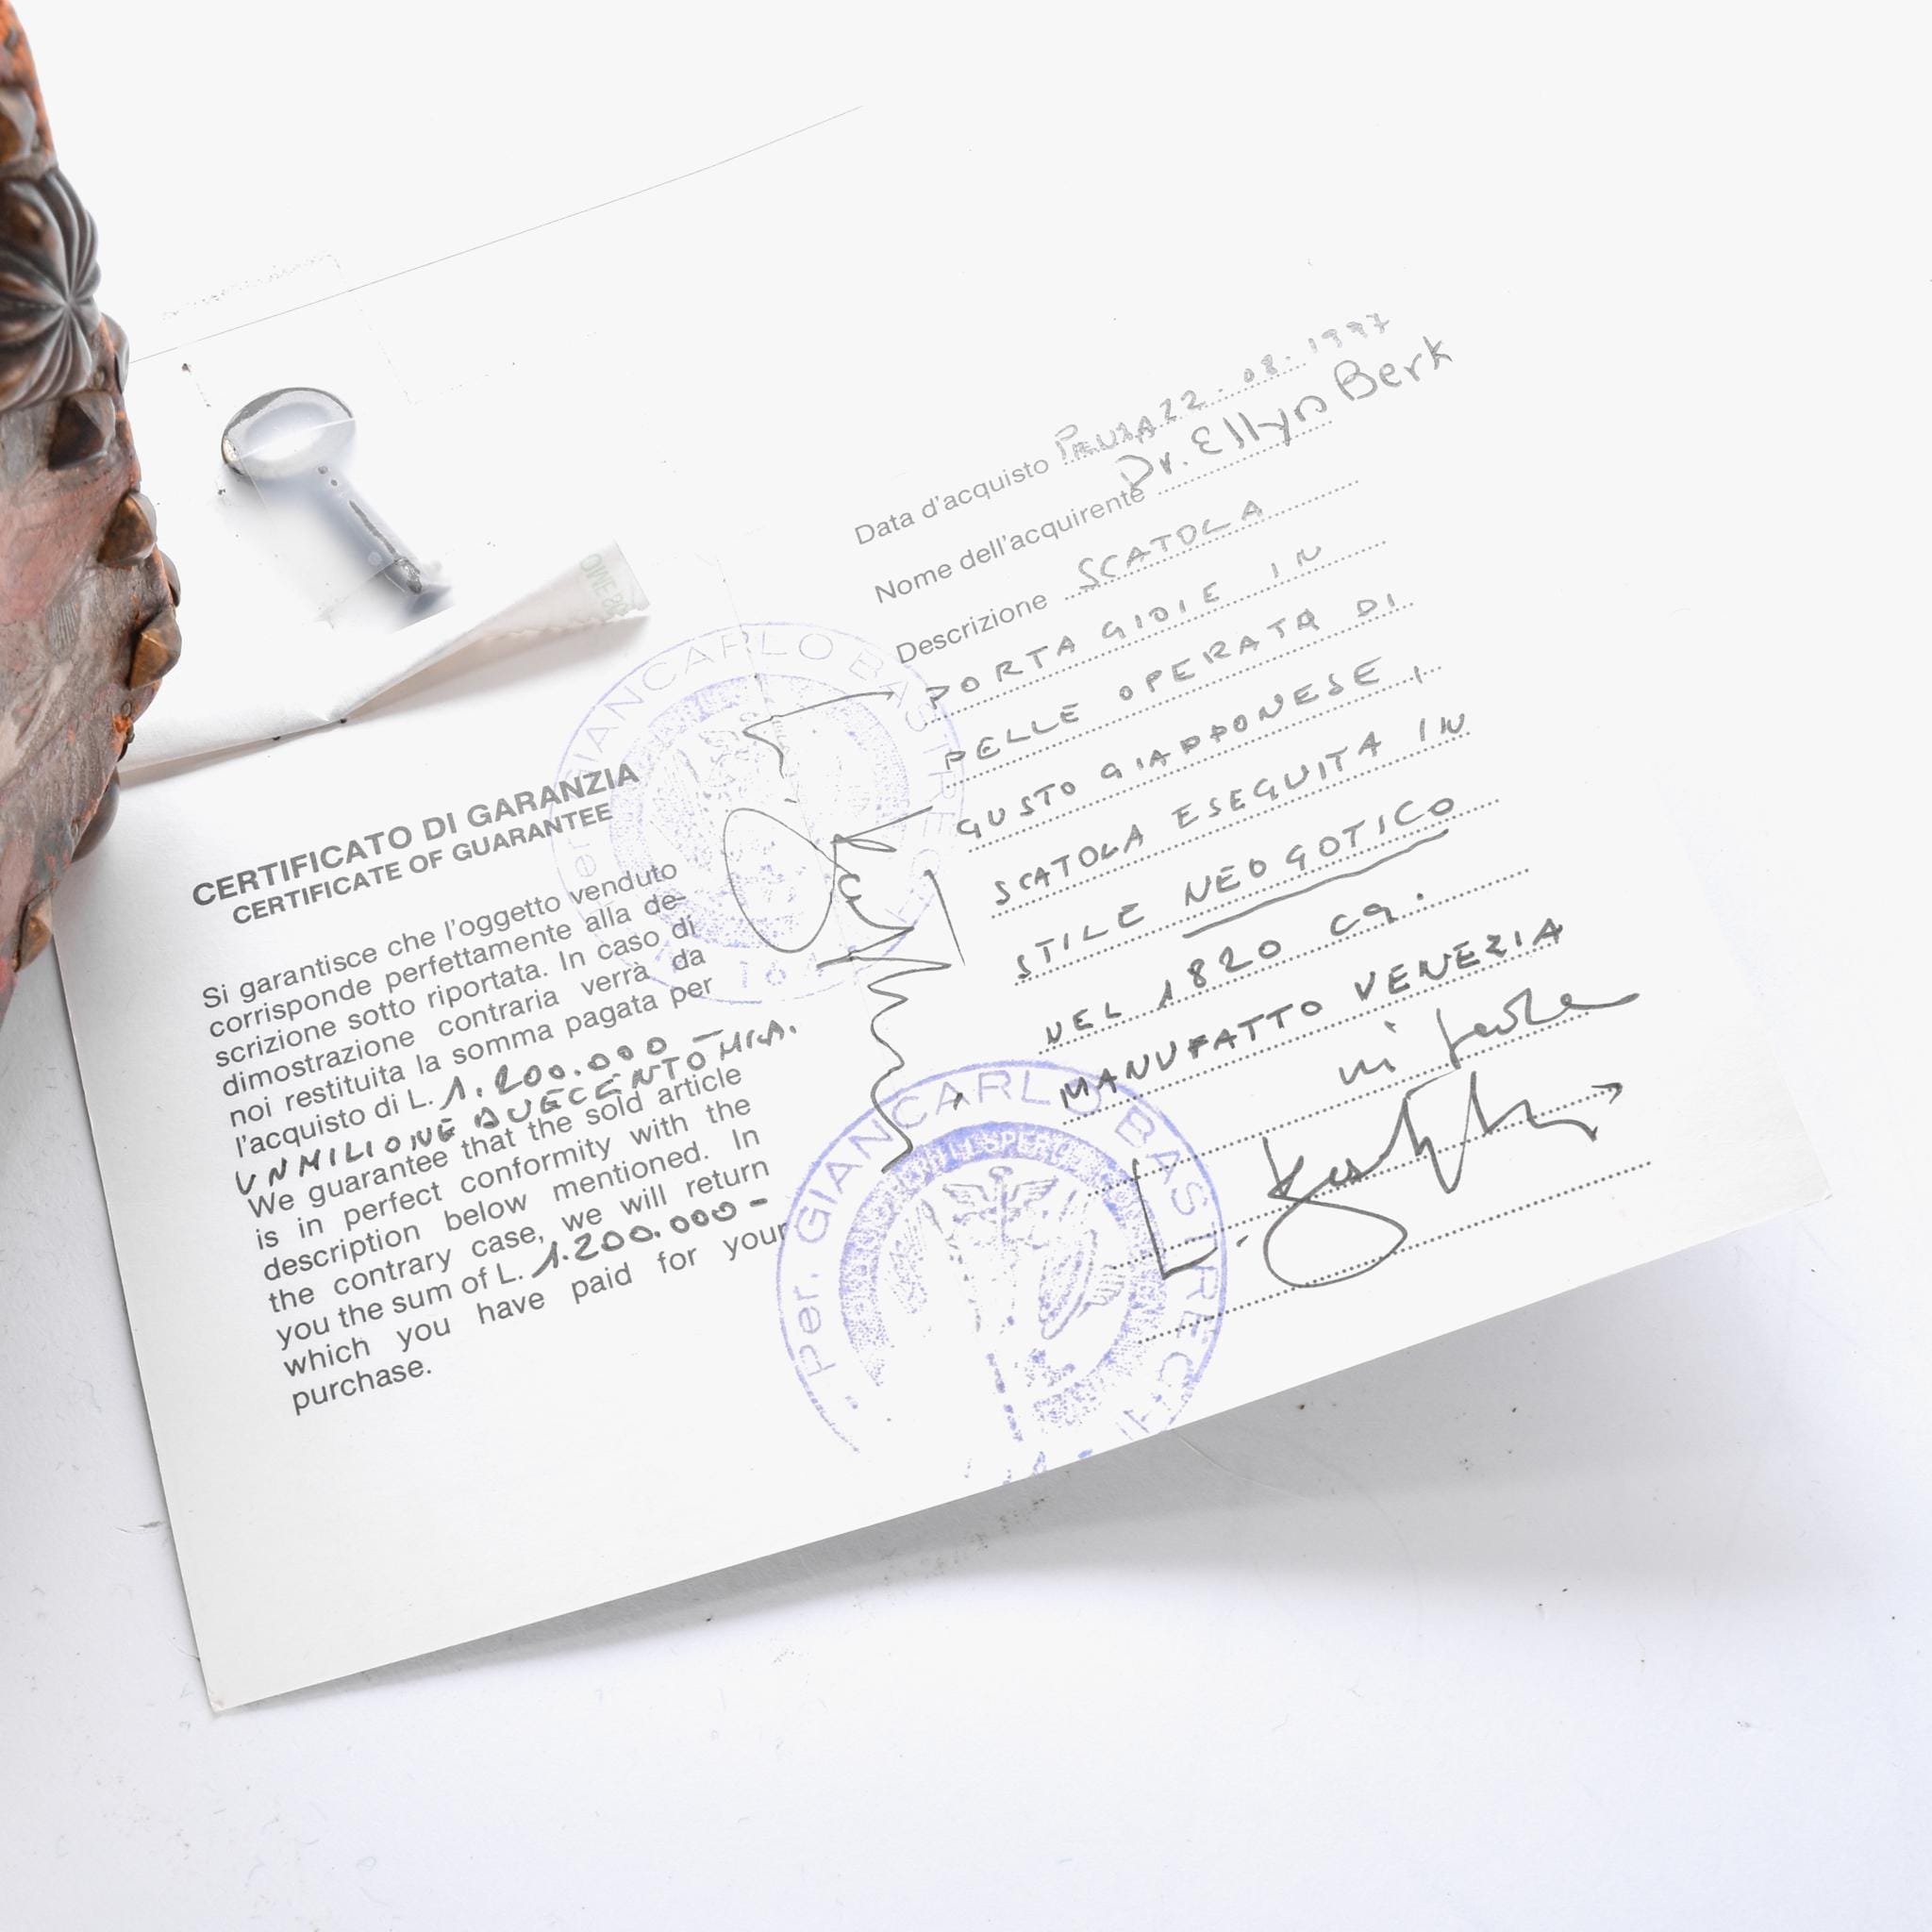 CERTIFICATO DI GARANZIA
CERTIFICATE OF GUARANTEE
Si garantisce che l'oggetto venduto
corrisponde perfettamente alla de-
scrizione sotto riportata. In caso di
dimostrazione contraria verrà da
noi restituita la somma pagata per
l'acquisto di L. 1.200.000 -
UNMILIONE DUECENTOMILA.
We guarantee that the sold article
is in perfect conformity with the
description below mentioned. In
the contrary case, we will return
you the sum of L. 1.200.000 -
which you have paid for your
purchase.
Data d'acquisto 22.08.1997
Nome dell'acquirente Dr. Ellyn Berk
Descrizione SCATOLA
PORTA GIOIE IN
PELLE OPERATA DI
GUSTO GIAPPONESE,
SCATOLA ESEGUITA IN
STILE NEOGOTICO
NEL 1820 ca.
MANUFATTO VENEZIA
Per. GIANCARLO BASTRE
Per. GIANCARLO BASTRE